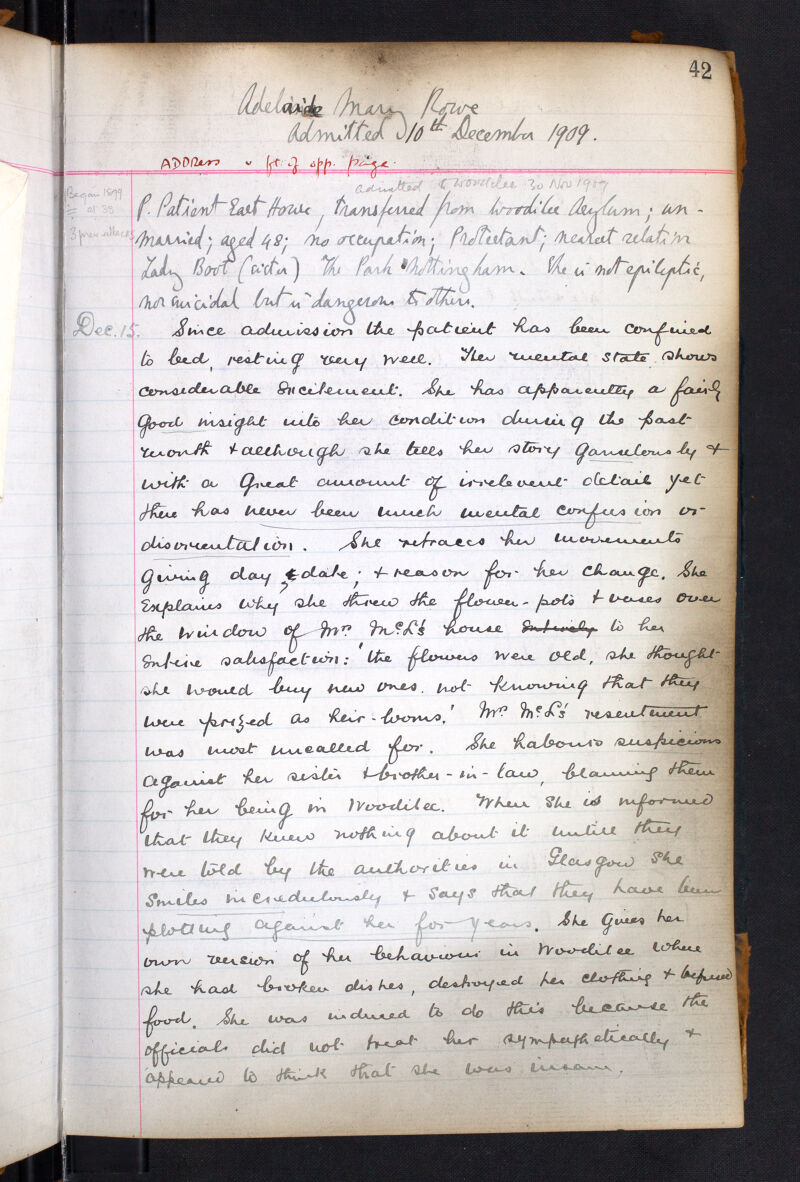 42
Adelaide Mary Rowe
Admitted 10th December 1909.
ADDRESS v ft. of opp. page.
admitted to Woodilee 30 Nov 1909
Began 1899
at 38
3 prev. attacks
P. Patient East House, transferred from Woodilee Asylum; un-
married; aged 48; no occupation; Protestant; nearest relation
Lady Boot (sister) The Park Nottingham. She is not epileptic,
nor suicidal but is dangerous to others.
Dec. 15. Since admission the patient has been confined
to bed, resting very well. Her mental state shows
considerable excitement. She has apparently a fairly
good insight into her condition during the past
month & although she tells her story garrulously &
with a great amount of irrelevent detail yet
there has never been much mental confusion or
disorientation. She retraces her movements
giving day, & date; & reason for her change. She
explains why she threw the flower-pots & vases over
the window of Mrs McL's house entirely to her
entire satisfaction: 'the flowers were old, she thought
she would buy new ones not knowing that they
were prized as heir-looms.' Mrs McL's resentment
was most uncalled for. She habours suspicions
against her sister & brother-in-law, blaming them
for her being in Woodilee. When she is informed
that they knew nothing about it untill they
were told by the authorities in Glasgow she
smiles incredulously & says that they have been
plotting against her for years. She gives her
own version of her behaviour in Woodilee where
she had broken dishes, destroyed her clothing & refused
food. She was induced to do this because the
officials did not treat her sympathetically &
appeared to think that she was insane.